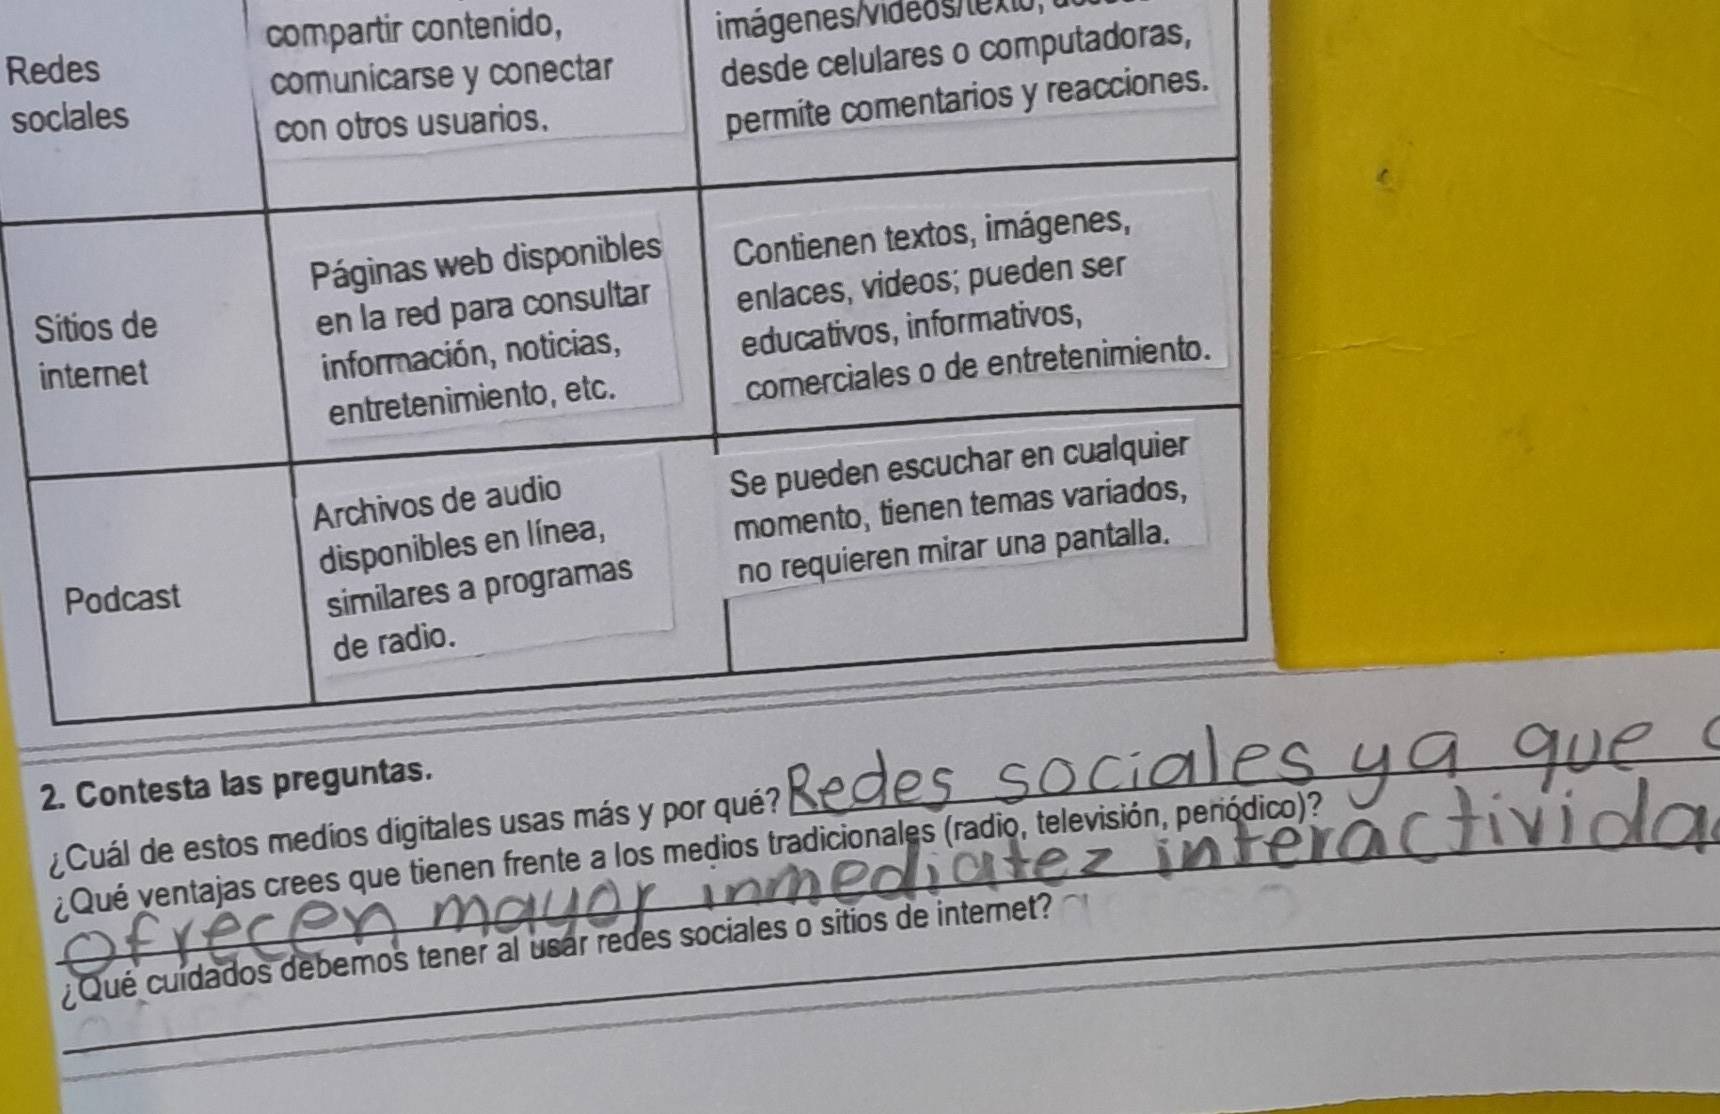 compartir contenido,
comunicarse y conectar
con otros usuarios.
imágenes/videos/texto,
desde celulares o computadoras,
permite comentarios y reacciones.
Redes
sociales
Sitios de
internet
Páginas web disponibles
en la red para consultar
información, noticias,
entretenimiento, etc.
Contienen textos, imágenes,
enlaces, videos; pueden ser
educativos, informativos,
comerciales o de entretenimiento.
Podcast
Archivos de audio
disponibles en línea,
similares a programas
de radio.
Se pueden escuchar en cualquier
momento, tienen temas variados,
no requieren mirar una pantalla.
2. Contesta las preguntas.
¿Cuál de estos medios digitales usas más y por qué? Redes sociales ya que
¿Qué ventajas crees que tienen frente a los medios tradicionales (radio, televisión, periódico)?
ofrecen mayor inmediatez interactivida
¿Qué cuidados debemos tener al usar redes sociales o sitios de internet?